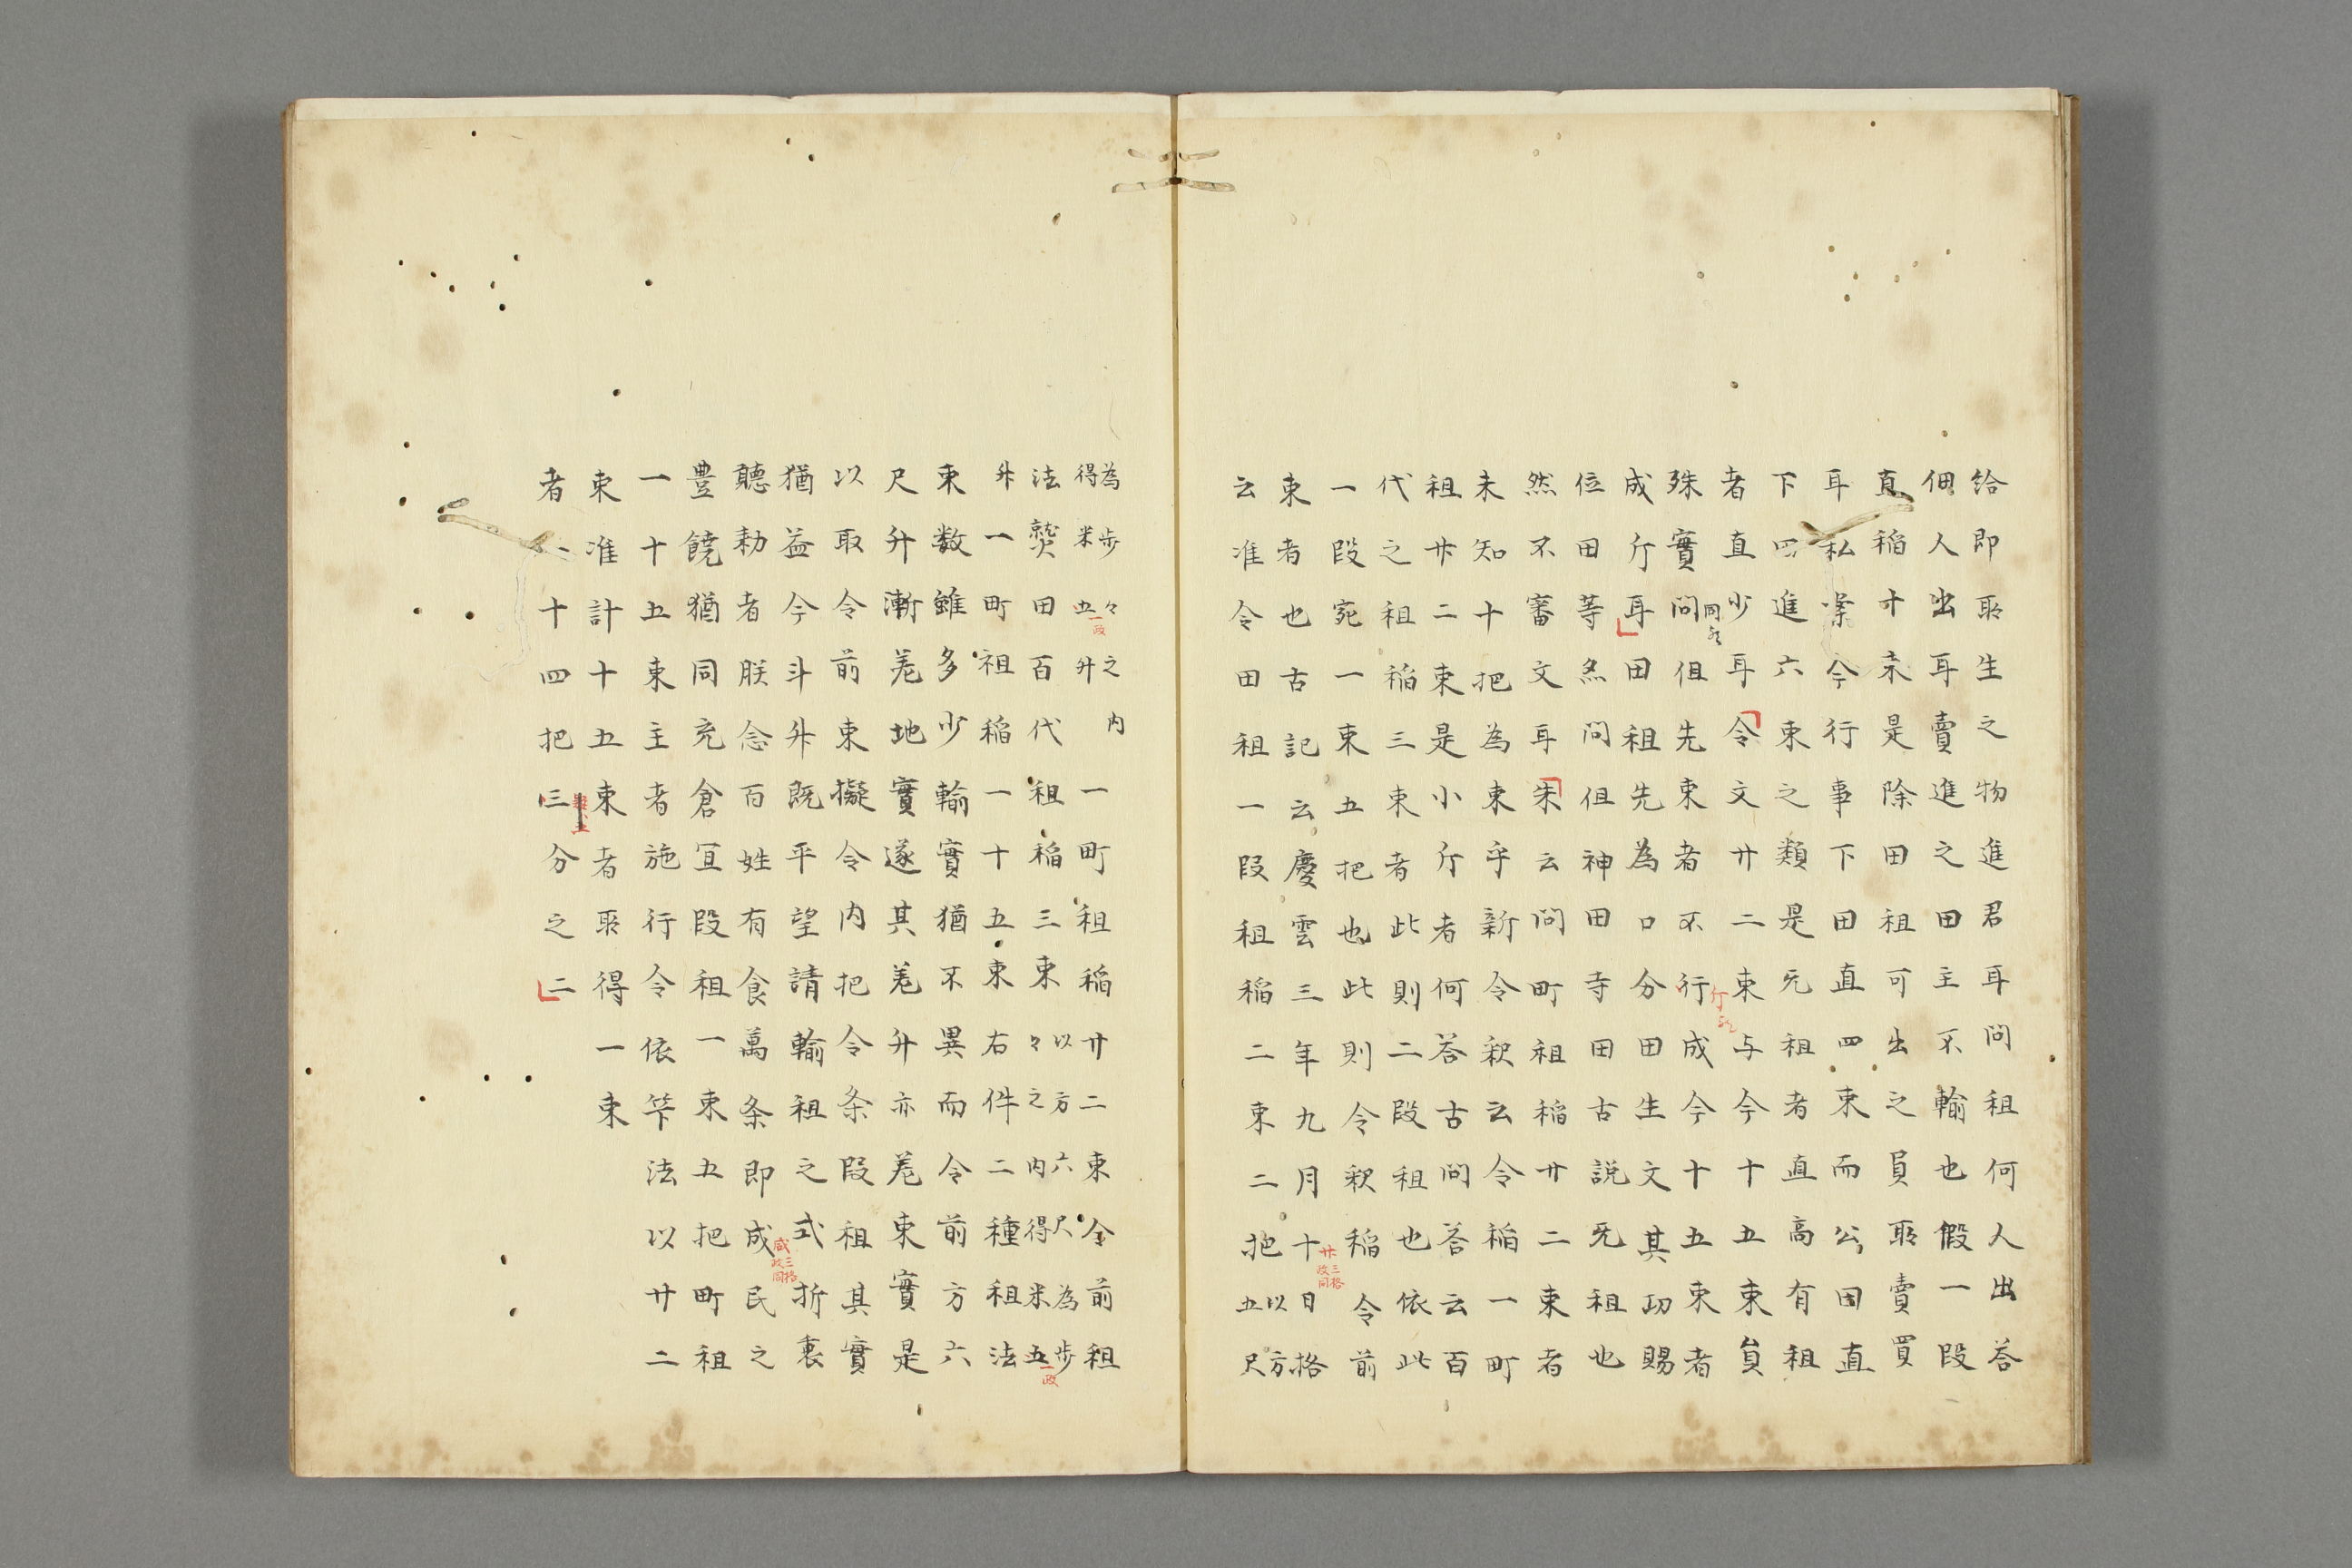 給即取生之物進君耳問租何人出荅
佃人出耳賣進之田主不輸也假一段
直稲十束是除田租可出之員取賣買
耳私業今行事下田直四束而公田直
下四進六束之類是无租者直高有租
者直少耳令文廿二束与今十五束負
殊實問但先束者不行成今十五束者
成斤耳田租先為口分田生文其功賜
位田等然問但神田寺田古説无租也
然不審文耳朱云問町租稲廿二束者
未知十把為束乎新令釈云令稲一町
租廿二束是小斤者何荅古問荅云百
代之租稲三束者此則二段租也依此
一段宛一束五把也此則令釈稲令前
束者也古記云慶雲三年九月十日格
云准令田租一段租稲二束二把以方五尺
為步々之内得米五升一町租稲廿二束令前租
法熟田百代租稲三束以方六尺為步々之内得米五
升一町租稲一十五束右件二種租法
束数雖多少輸實猶不異而令前方六
尺升漸差地實遂其差升亦差束實是
以取令前束擬令内把令条段租其實
猶益今斗升既平望請輸租之式折衷
聴勅者朕念百姓有食萬条即成民之
豊饒猶同充倉冝段租一束五把町租
一十五束主者施行令依竿法以廿二
束准計十五束者取得一束
者一十四把三分之二